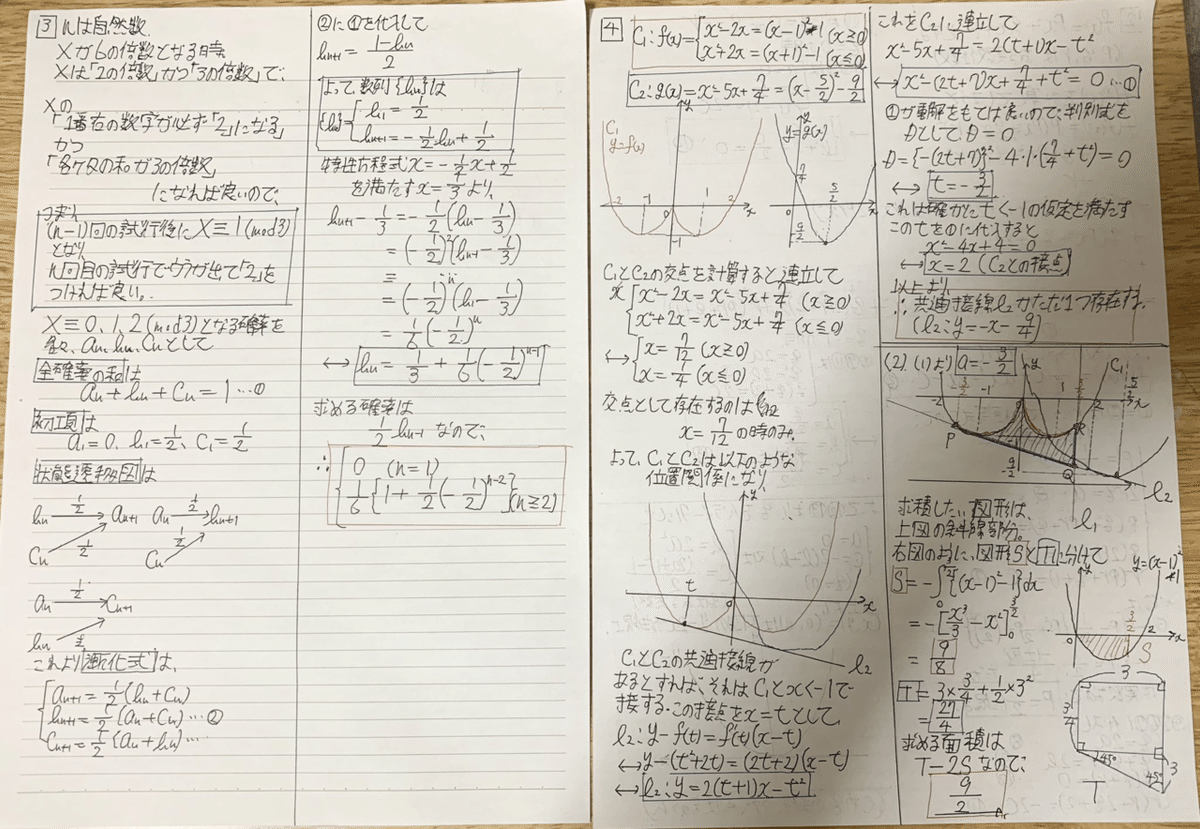 3 nは自然数.
Xが6の倍数となる時
Xは「2の倍数」かつ「3の倍数」で、
Xの
「1番右の数字が必ず「2」になる」
かつ
「各ケタの和が3の倍数」
になれば良いので、
つまり
(n-1)回の試行後にX≡1(mod3)
となり
n回目の試行でウラが出て「2」を
つければ良い。
X≡0,1,2(mod3)となる確率を
各々、an,bn,cnとして
全確率の和は
an+bn+cn=1…①
初項は
a1=0、b1=1/2、c1=1/2
状態遷移図は
bn 1/2→ an+1 an 1/2→ bn+1
cn 1/2 cn 1/2
an 1/2→ cn+1
bn 1/2
これより漸化式は、
an+1=1/2(bn+cn)
bn+1=1/2(an+cn)…②
cn+1=1/2(an+bn)…
②に①を代入して
bn+1=(1-bn)/2
よって、数列{bn}は
{bn} b1=1/2
bn+1=-1/2bn+1/2
特性方程式x=-1/2x+1/2
を満たすx=1/3より、
bn+1-1/3=-1/2(bn-1/3)
=(-1/2)²(bn-1-1/3)
=
=(-1/2)ⁿ(b1-1/3)
=1/6(-1/2)ⁿ
↔ bn=1/3+1/6(-1/2)ⁿ⁻¹
求める確率は
1/2bn-1なので、
∴ 0 (n=1)
1/6{1+1/2(-1/2)ⁿ⁻²}(n≧2)
4 C1:f(x)={x²-2x=(x-1)²-1 (x≧0)
x²+2x=(x+1)²-1 (x≦0)
C2:g(x)=x²-5x+7/4=(x-5/2)²-9/2
C1 y=f(x) y
-2 -1 0 1 2 x
-1
y=g(x) y
7/4 5/2 0 x
-9/2
C1とC2の交点を計算すると、連立して
x²-2x=x²-5x+7/4 (x≧0)
x²+2x=x²-5x+7/4 (x≦0)
↔ x=7/12 (x≧0)
x=1/4 (x≦0)
交点として存在するのは
x=7/12の時のみ.
よって、C1とC2は以下のような
位置関係になり、
y t 0 x l2
C1とC2の共通接線が
あるとすれば、それはC1とx<-1で
接する.この接点をx=tとして
l2:y-f(t)=f'(t)(x-t)
↔y-(t²+2t)=(2t+2)(x-t)
↔ l2:y=2(t+1)x-t²
これをC2に連立して
x²-5x+7/4=2(t+1)x-t²
↔ x²-(2t+7)x+7/4+t²=0…①
①が重解をもてば良いので、判別式を
DとしてD=0
D={-(2t+7)}²-4・1・(7/4+t²)=0
↔ t=-3/2
これは確かにt<-1の仮定を満たす
このtを①に代入すると
x²-4x+4=0
↔ x=2 (C2との接点)
以上より
∴共通接線l2がただ1つ存在する.
(l2:y=-x-9/4)
(2).(1)より a=-3/2
y C1
-2 -3/2 -1 0 1 3/2 2 5/2 x
P R Q
-9/2
l1 l2
求積したい図形は、
上図の斜線部分。
右図のように、図形SとTに分けて
S=-∫{(x-1)²-1}dx
=-[x³/3-x²]
=9/8
T=3×3/4+1/2×3²
=27/4
求める面積は
T-2Sなので、
9/2
y=(x-1)²-1
y 0 3/2 2 x S
3
3/4
45° 45° 3
T